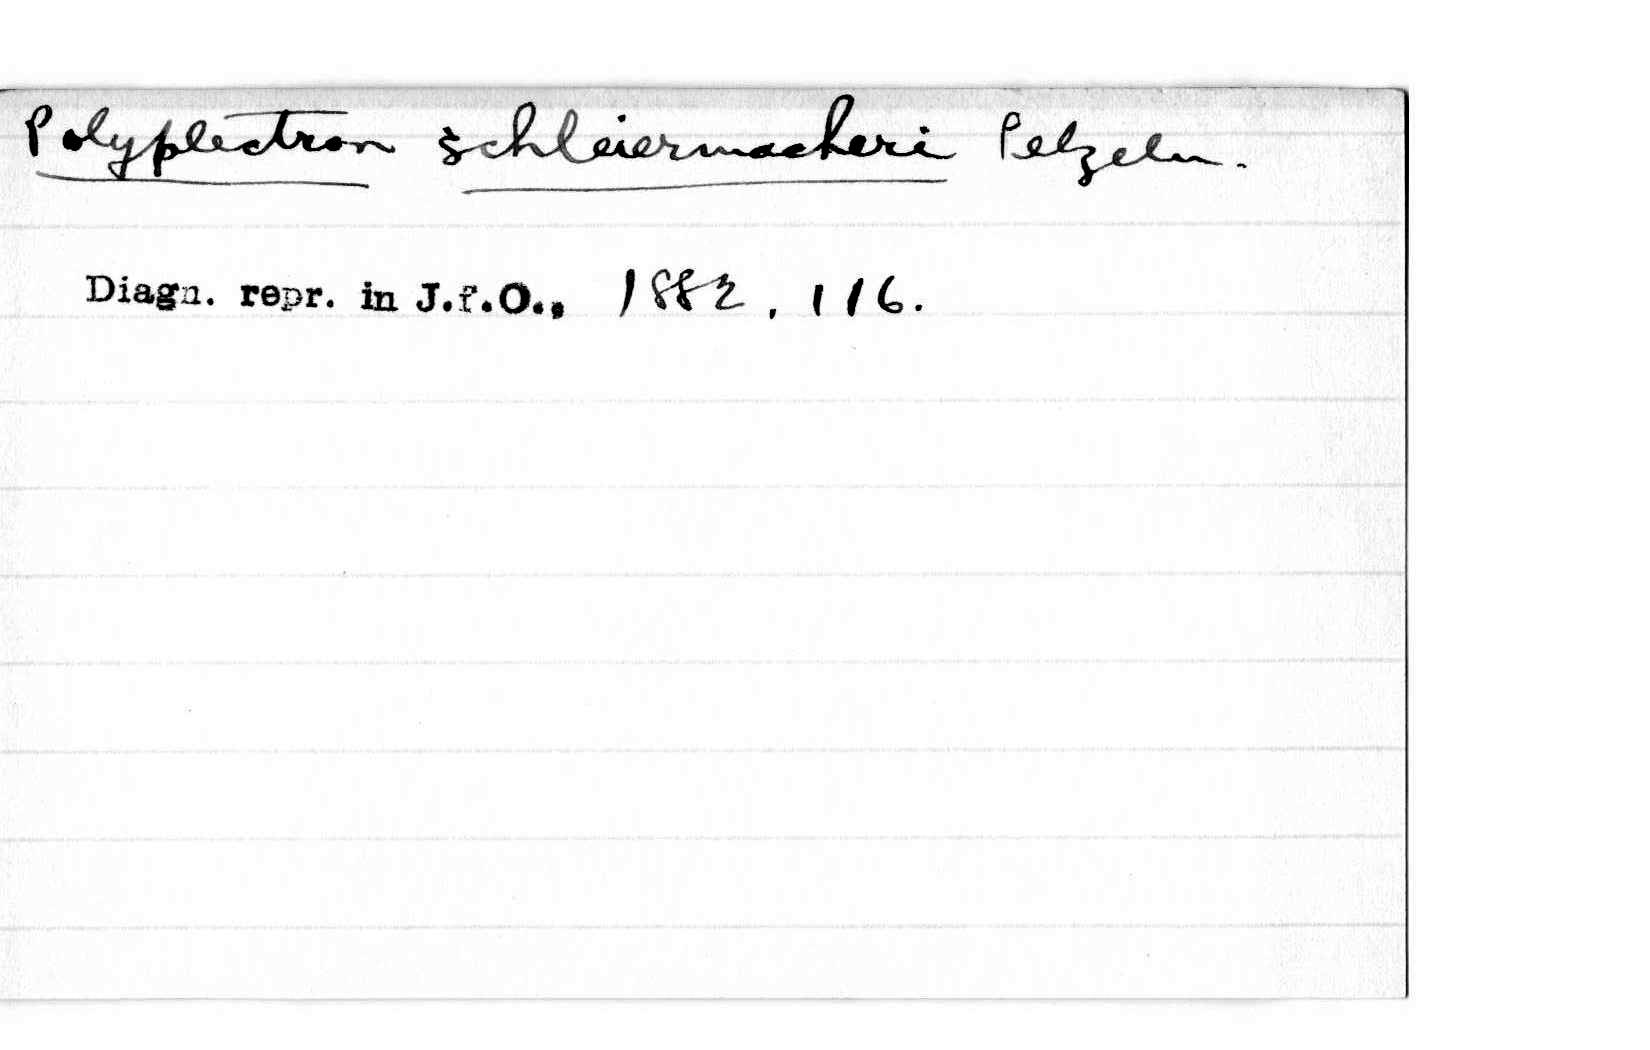 Polyplectron schleiermacheri Pelzeln.
Diagn. repr. in J.f.O., 1882, 116.